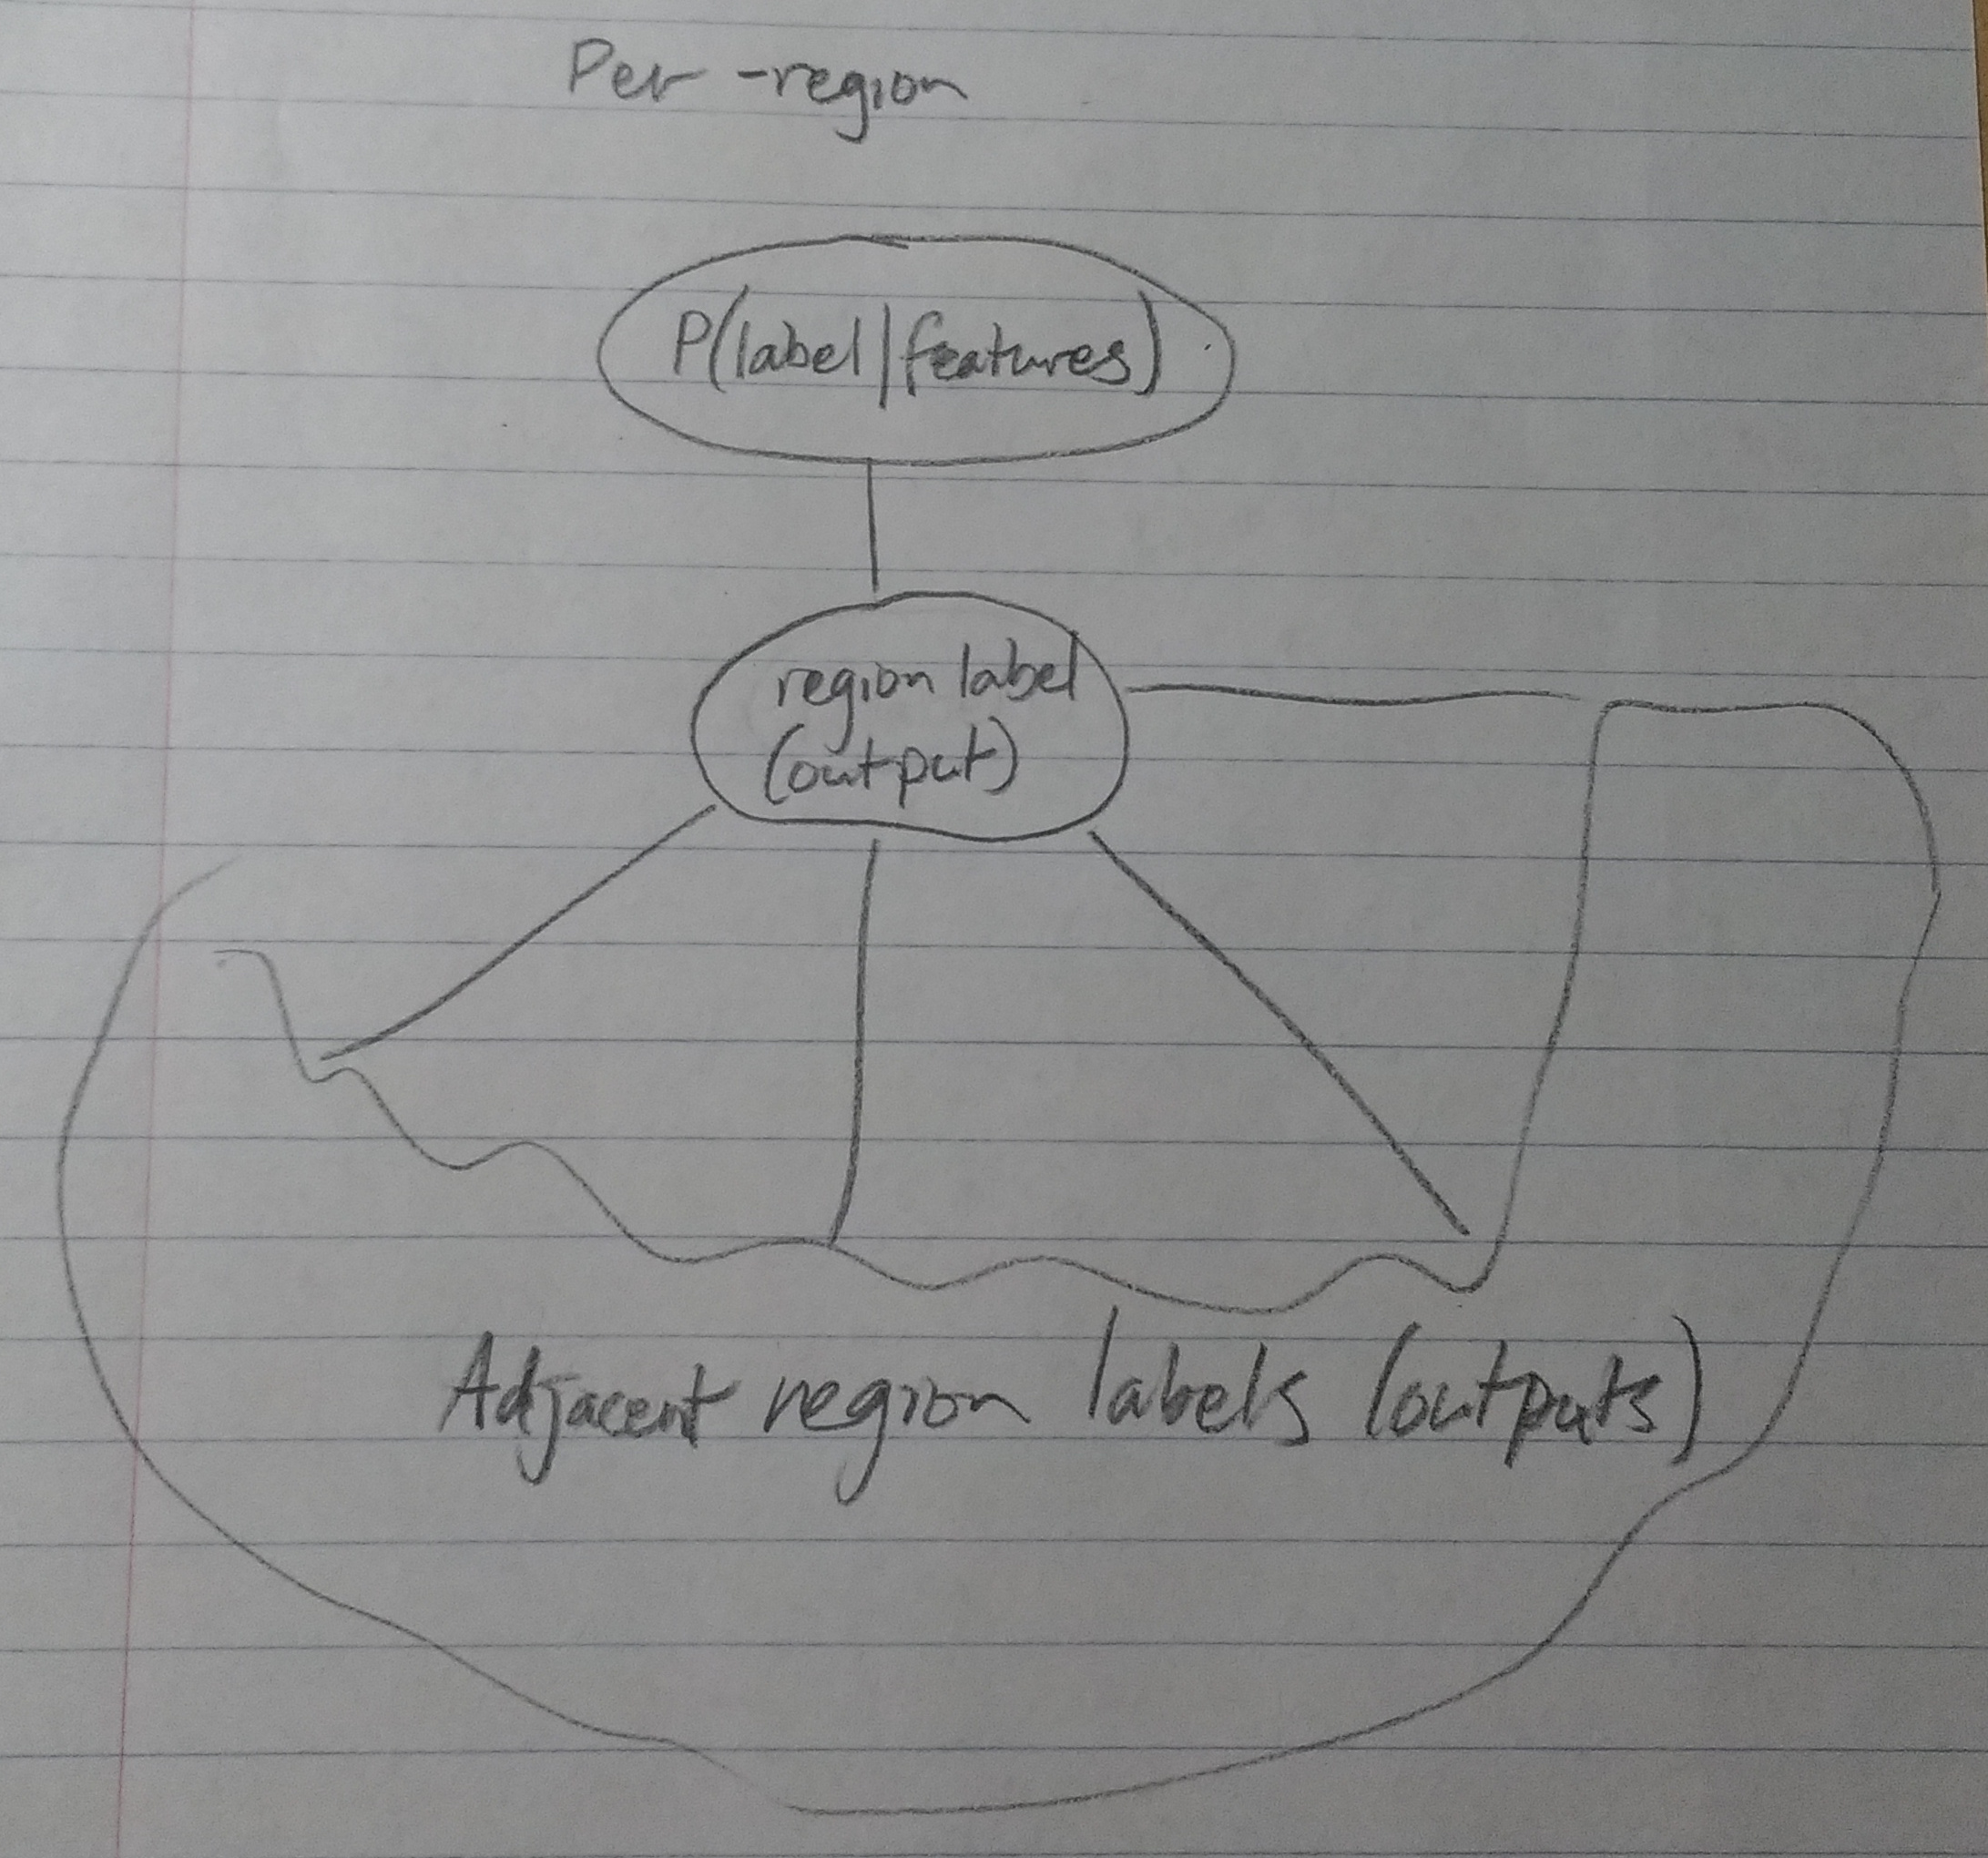 Per-region
P(label|features)
region label
(output)
Adjacent region labels (outputs)